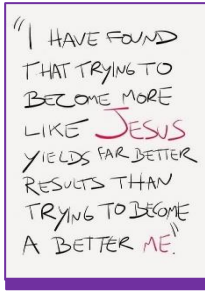 "I HAVE FOUND
THAT TRYING TO
BECOME MORE
LIKE JESUS
YIELDS FAR BETTER
RESULTS THAN
TRYING TO BECOME
A BETTER ME."